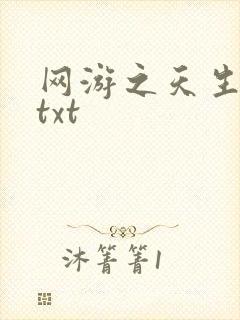 网游之天生
txt
沐箐箐1